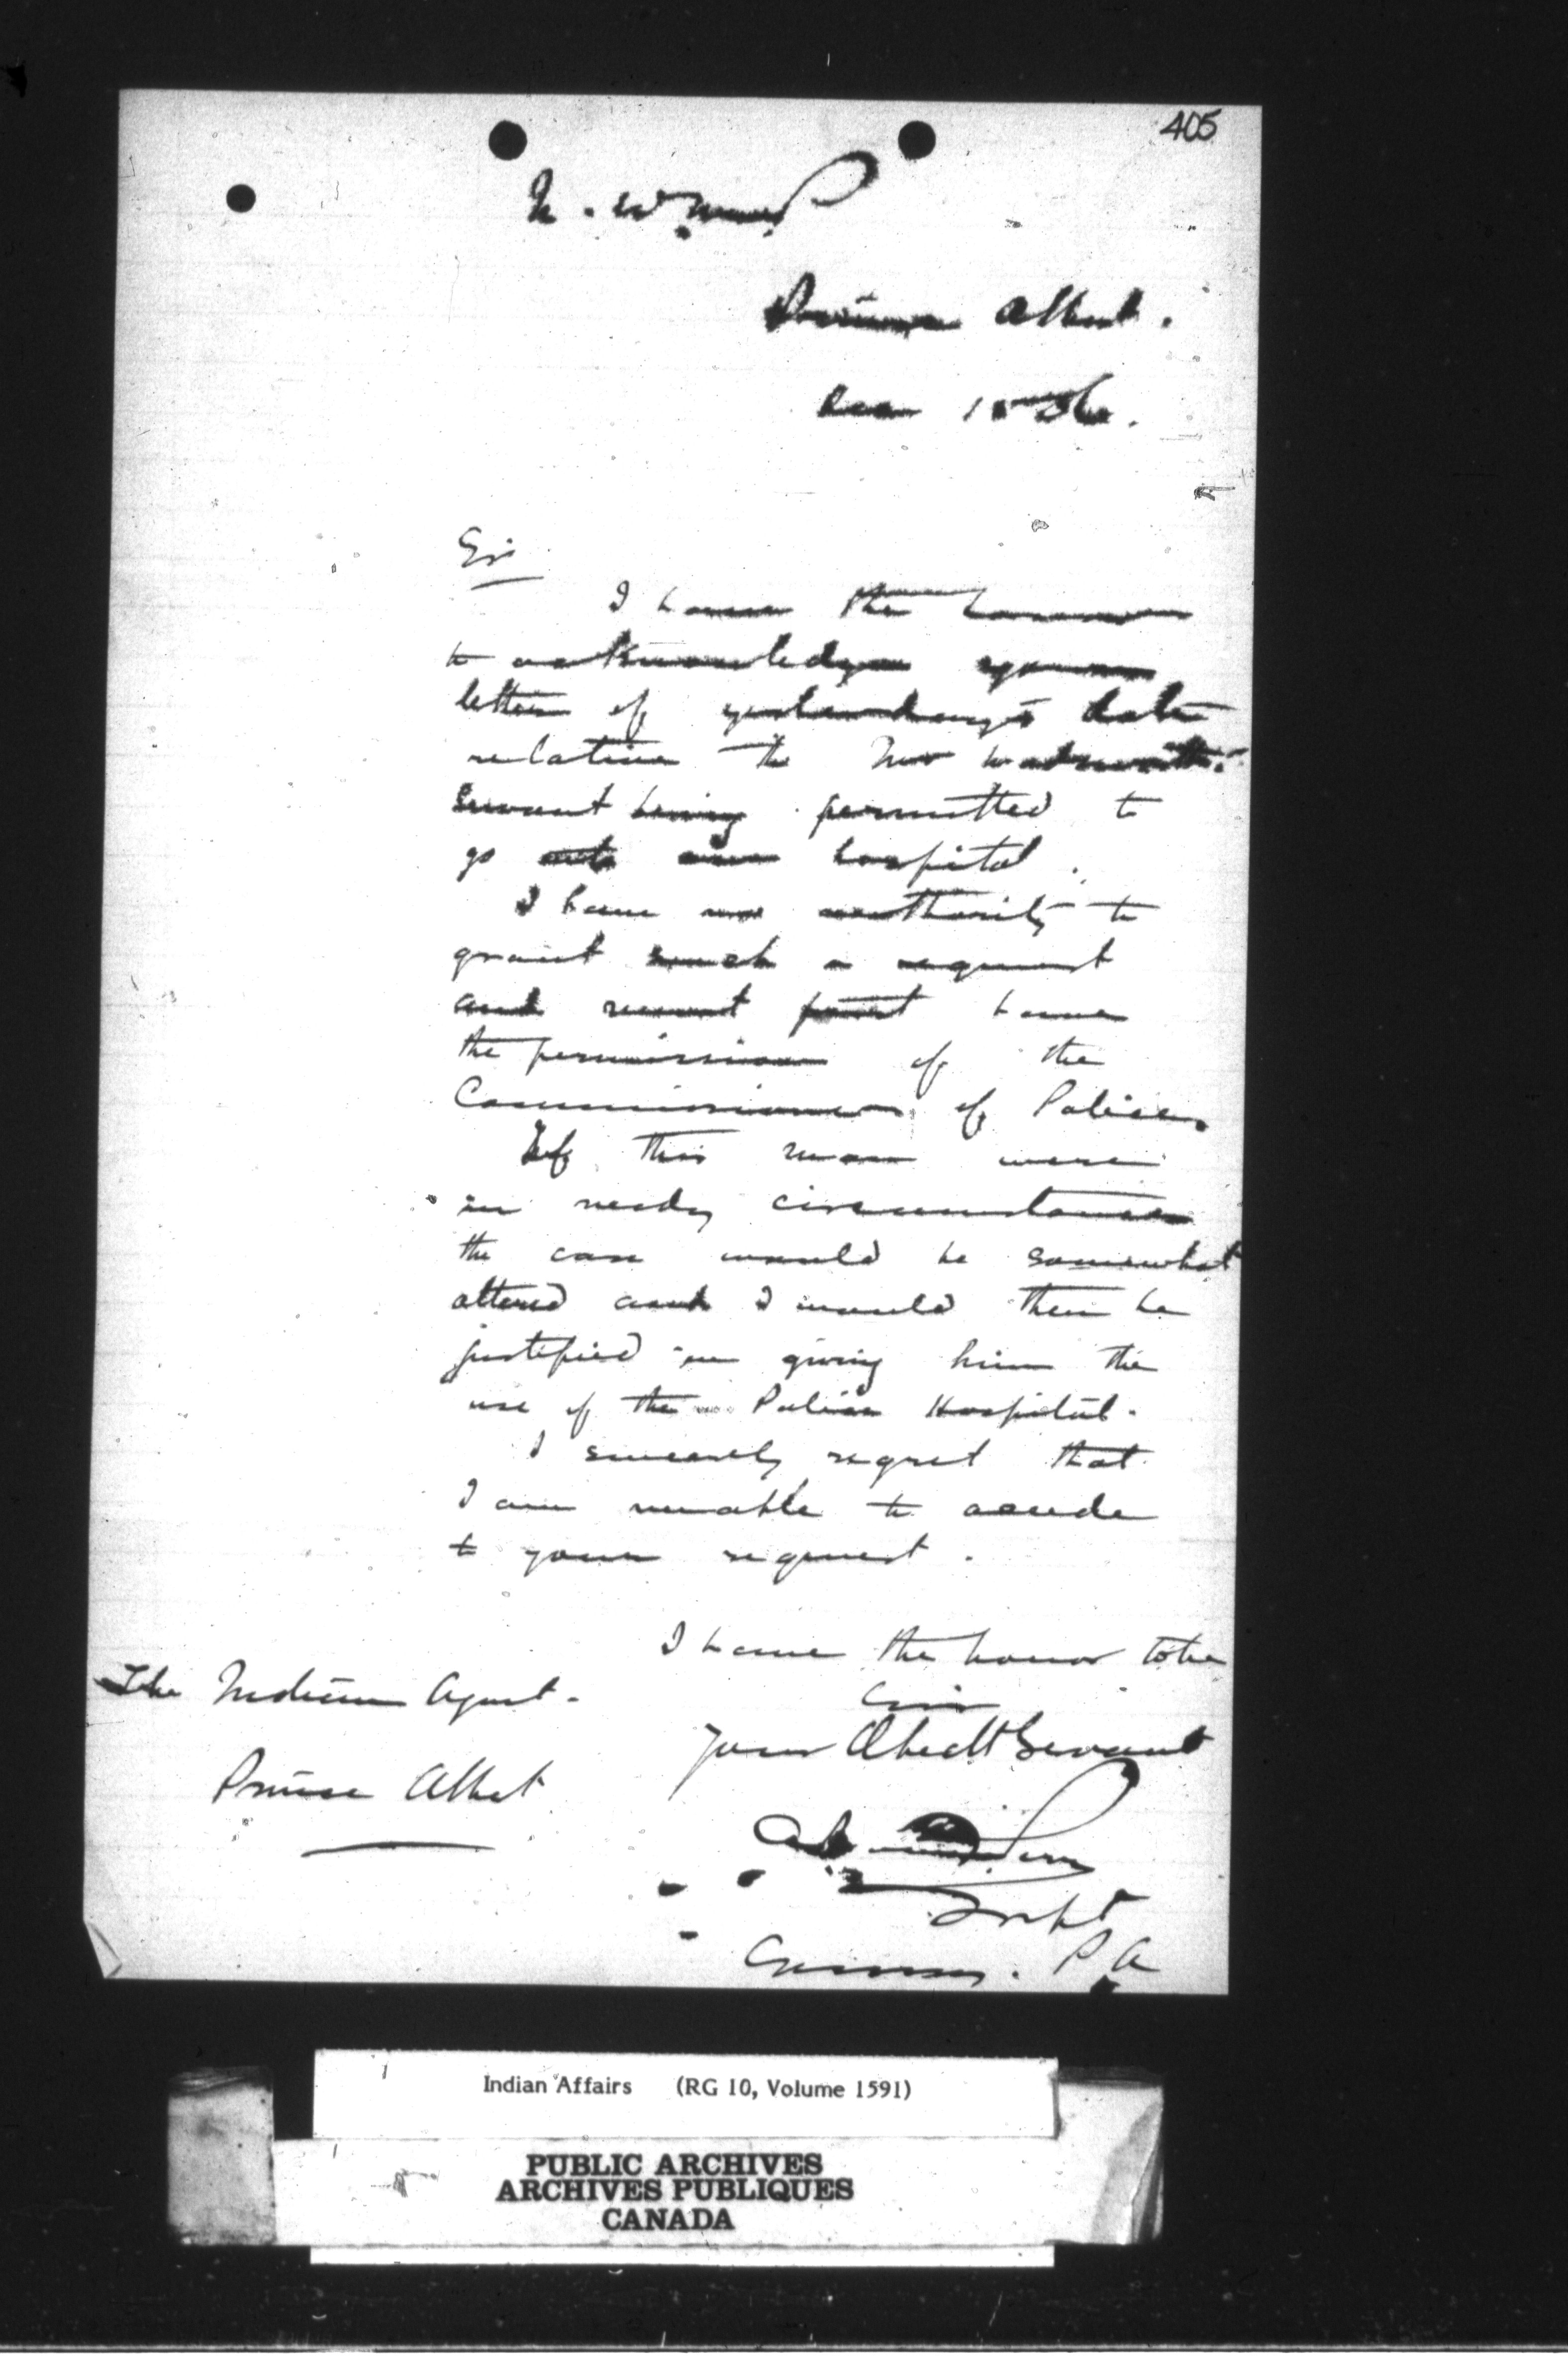 405
N. W. M. P
Prince Albert.
Dec 15th 86.
Sir
I have the honour
to acknowledge your
letter of yesterday's date
relative to Mr Wadsworth's
servant being permitted to
go into our hospital.
I have no authority to
grant such a request
and must first have
the permission of the
Commissioner of Police.
If this man were
in needy circumstances
the case would be somewhat
altered and I would then be
justified in giving him the
use of the Police Hospital.
I sincerely regret that
I am unable to accede
to your request.
I have the honor to be
Sir
Your Obedt Servant
Supt
Commg. P A
The Indian Agent.
Prince Albert
Indian Affairs (RG 10, Volume 1591)
PUBLIC ARCHIVES
ARCHIVES PUBLIQUES
CANADA